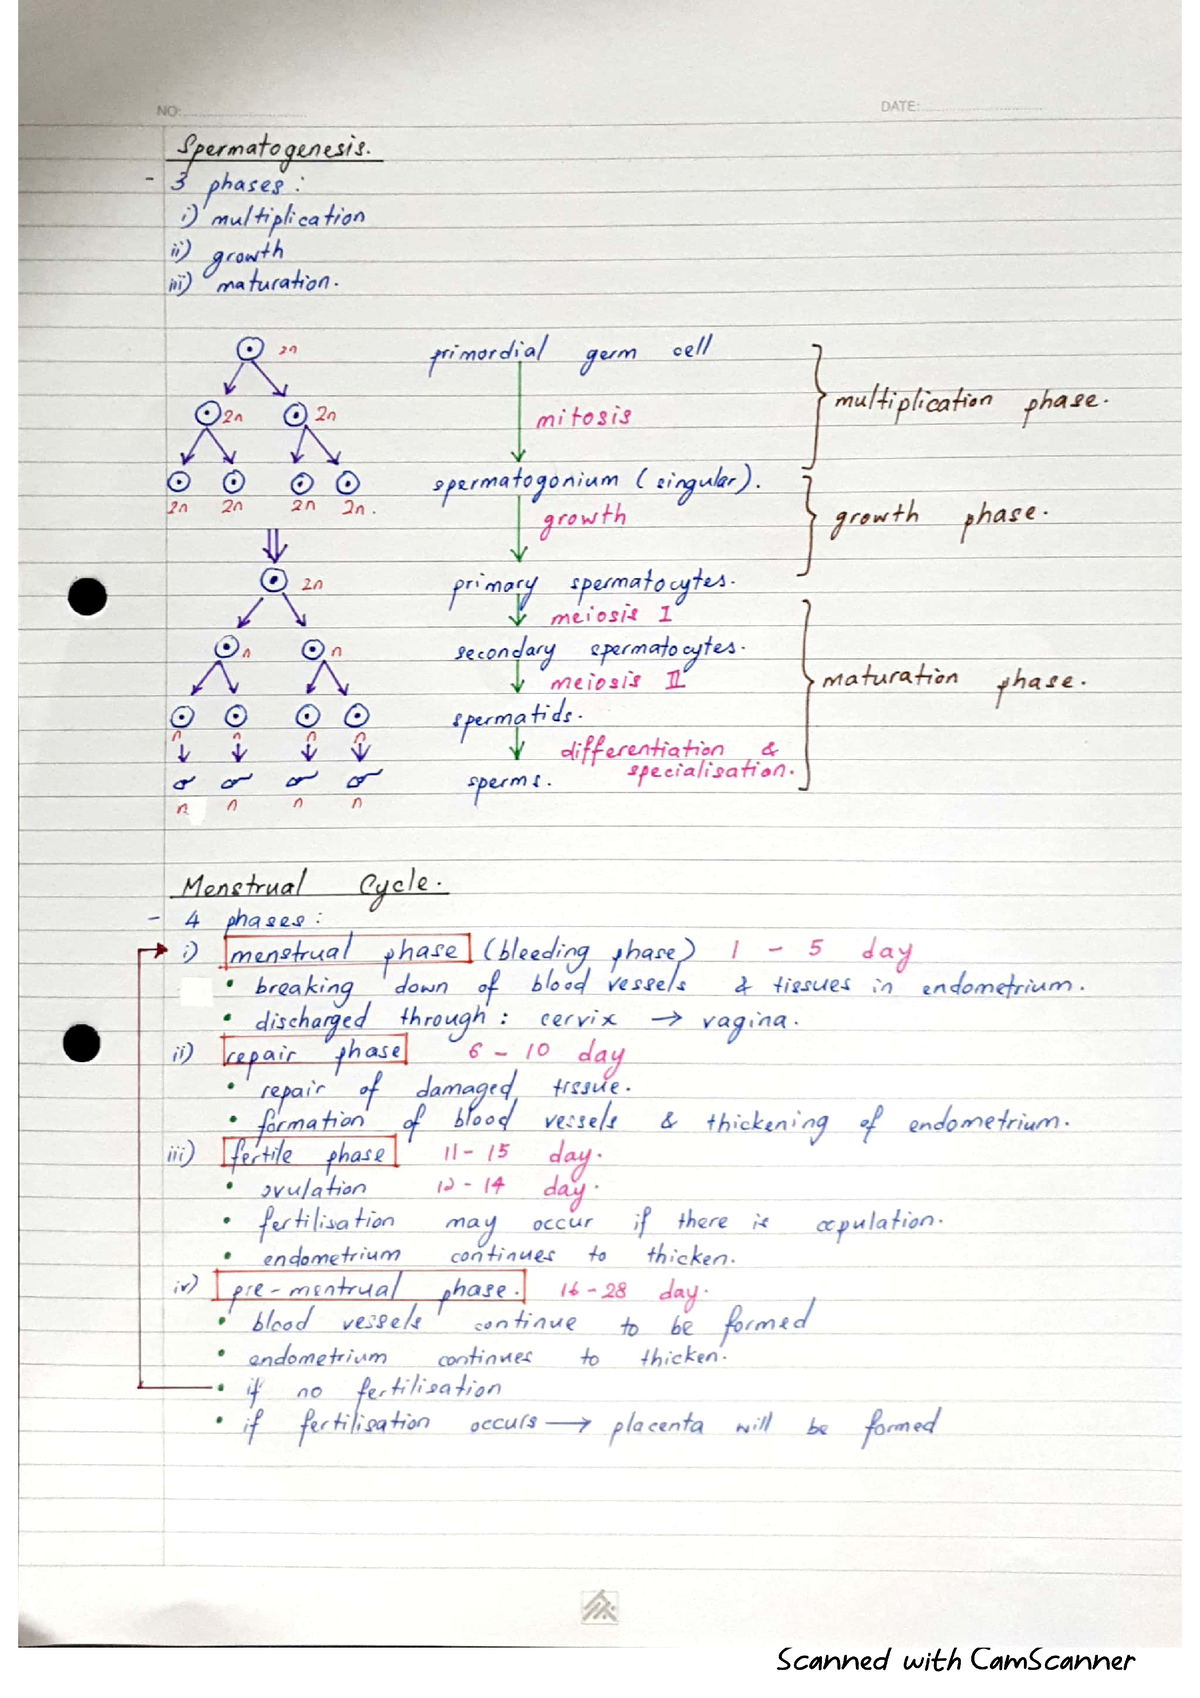 NO: DATE:
Spermatogenesis.
- 3 phases :
i) multiplication
ii) growth
iii) maturation.
2n primordial germ cell
2n 2n mitosis multiplication phase.
spermatogonium (singular).
2n 2n 2n 2n. growth growth phase.
2n primary spermatocytes.
meiosis I
n n secondary spermatocytes.
meiosis II maturation phase.
spermatids.
n n n n differentiation &
specialisation.
sperms.
n n n n
Menstrual Cycle.
- 4 phases :
i) menstrual phase (bleeding phase) 1 - 5 day
• breaking down of blood vessels & tissues in endometrium.
• discharged through : cervix → vagina.
ii) repair phase 6 - 10 day
• repair of damaged tissue.
• formation of blood vessels & thickening of endometrium.
iii) fertile phase 11 - 15 day.
• ovulation 12 - 14 day.
• fertilisation may occur if there is copulation.
• endometrium continues to thicken.
iv) pre-mentrual phase. 16 - 28 day.
• blood vessels continue to be formed
• endometrium continues to thicken.
• if no fertilisation
• if fertilisation occurs → placenta will be formed
Scanned with CamScanner